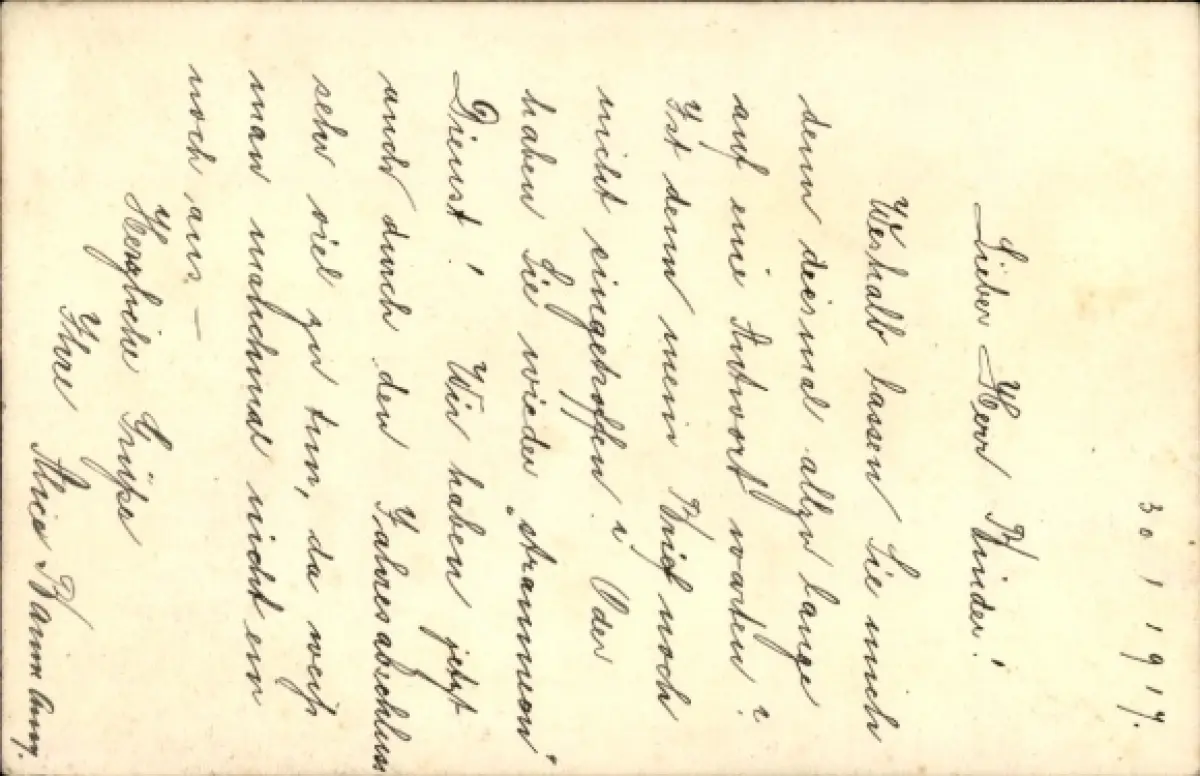 30. 1. 1917.
Lieber Herr Binder!
Weshalb lassen Sie mich
denn diesmal allzu lange
auf eine Antwort warten?
Ist denn mein Brief noch
nicht eingetroffen? Oder
haben Sie wieder „strammen“
Dienst! Wir haben jetzt
auch durch den Jahresabschluss
sehr viel zu tun, da weiß
man machmal nicht ein
noch aus. —
Herzliche Grüße
Ihre
Alice